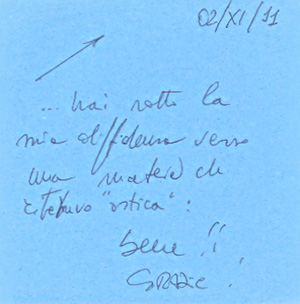 02/XI/11
... hai rotto la
mia diffidenza verso
una materia che
ritenevo "ostica":
bene!!
GRAZIE!